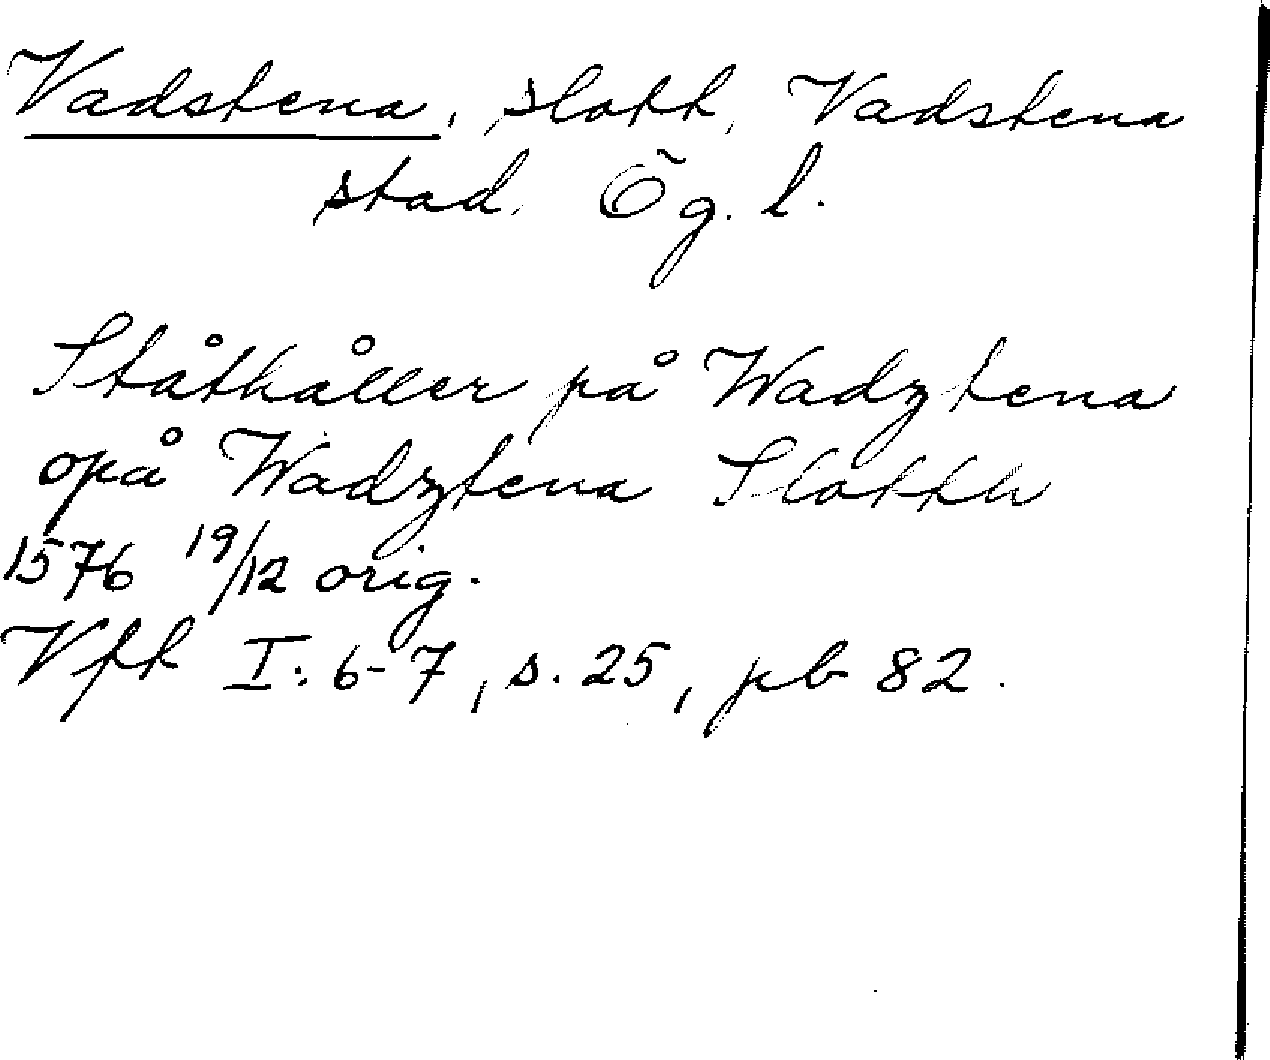 Vadstena, slott, Vadstena
stad. Ög. l.
Ståthåller på Wadztena
opå Wadztena Slotth
1576 19/12 orig.
Vfk I: 6-7, s. 25, pb 82.